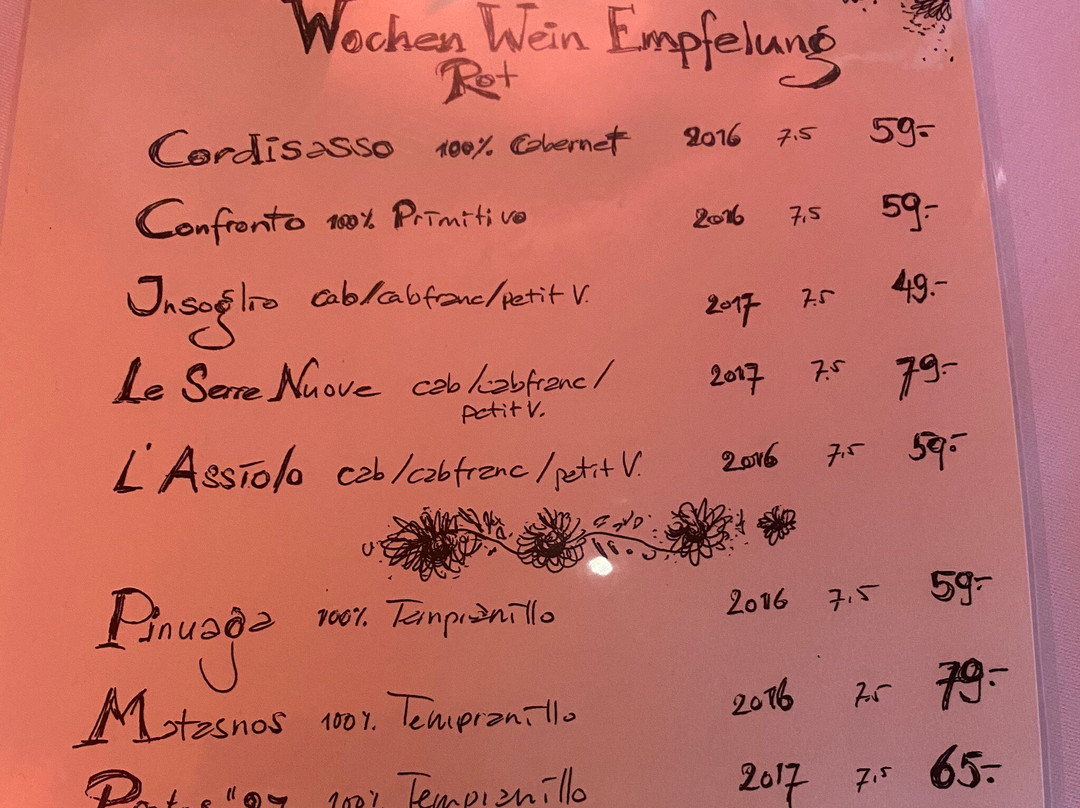 Wochen Wein Empfelung
Rot
Cordisasso 100% Cabernet 2016 7.5 59.-
Confronto 100% Primitivo 2016 7,5 59.-
Insoglio cab/cabfranc/petit V. 2017 7.5 49.-
Le Serre Nuove cab/cabfranc/ 2017 7.5 79.-
petit V.
L'Assiolo cab/cabfranc/petit V. 2016 7.5 59.-
Pinuaga 100% Tempranillo 2016 7,5 59.-
Matasnos 100% Tempranillo 2016 7.5 79.-
100% Tempranillo 2017 7,5 65.-